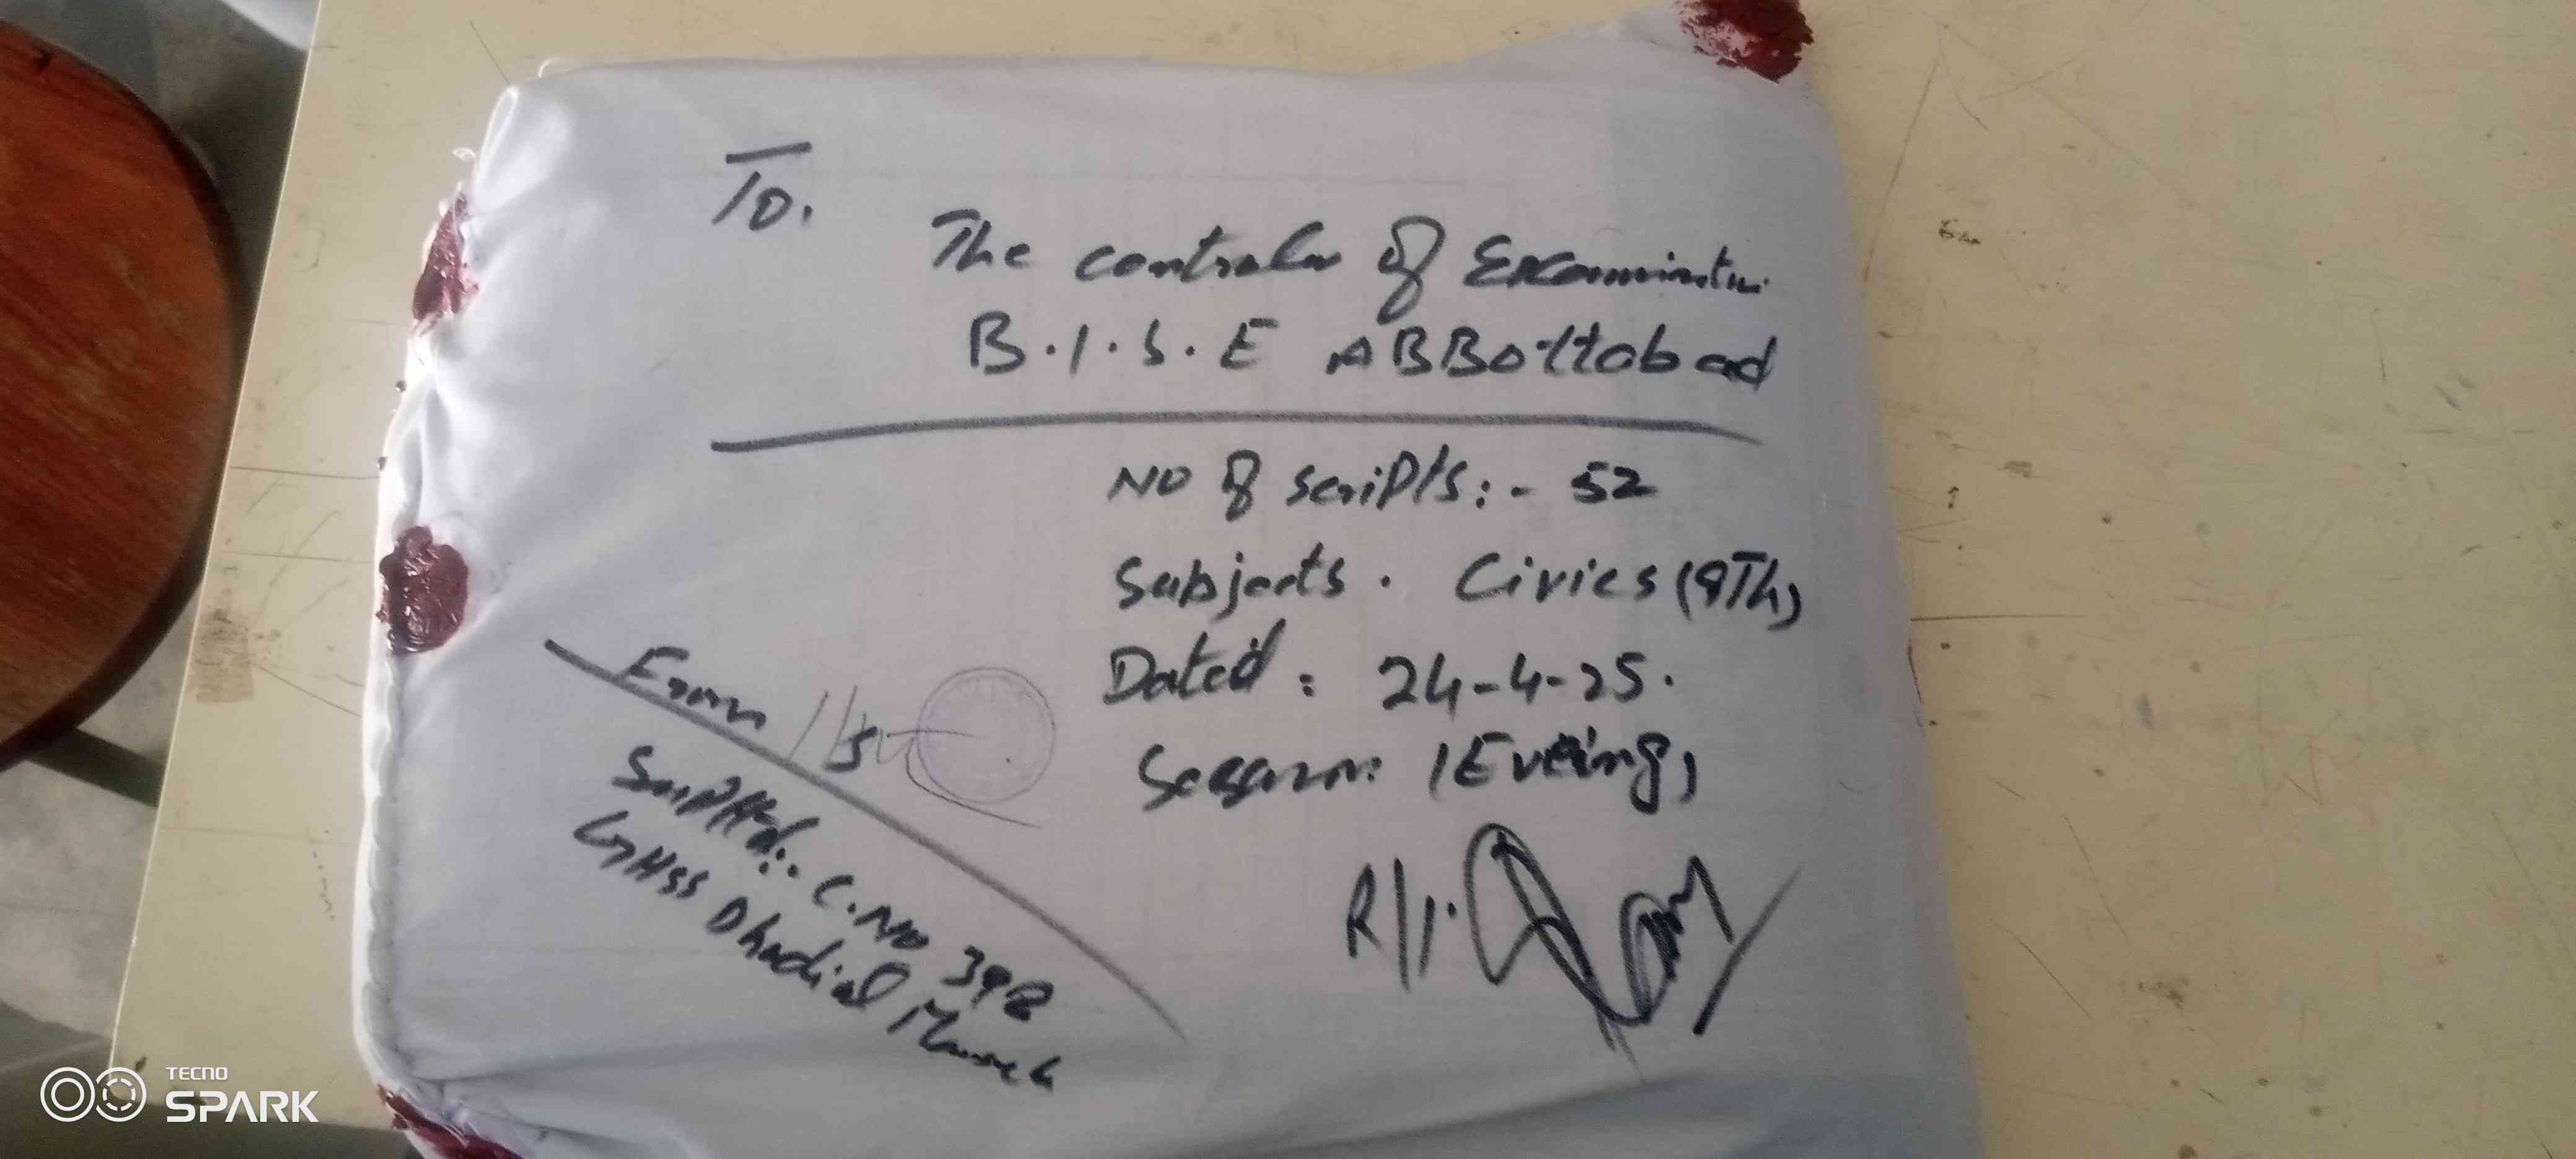 To.
The controler of Examination
B.I.S.E ABBottabad
No of scripts:- 52
Subjects. Civics (9Th)
Dated: 24-4-25.
Session: (Eveing)
From
Suptt: C.NO 398
GHSS Dhudial Manseh
TECNO
SPARK